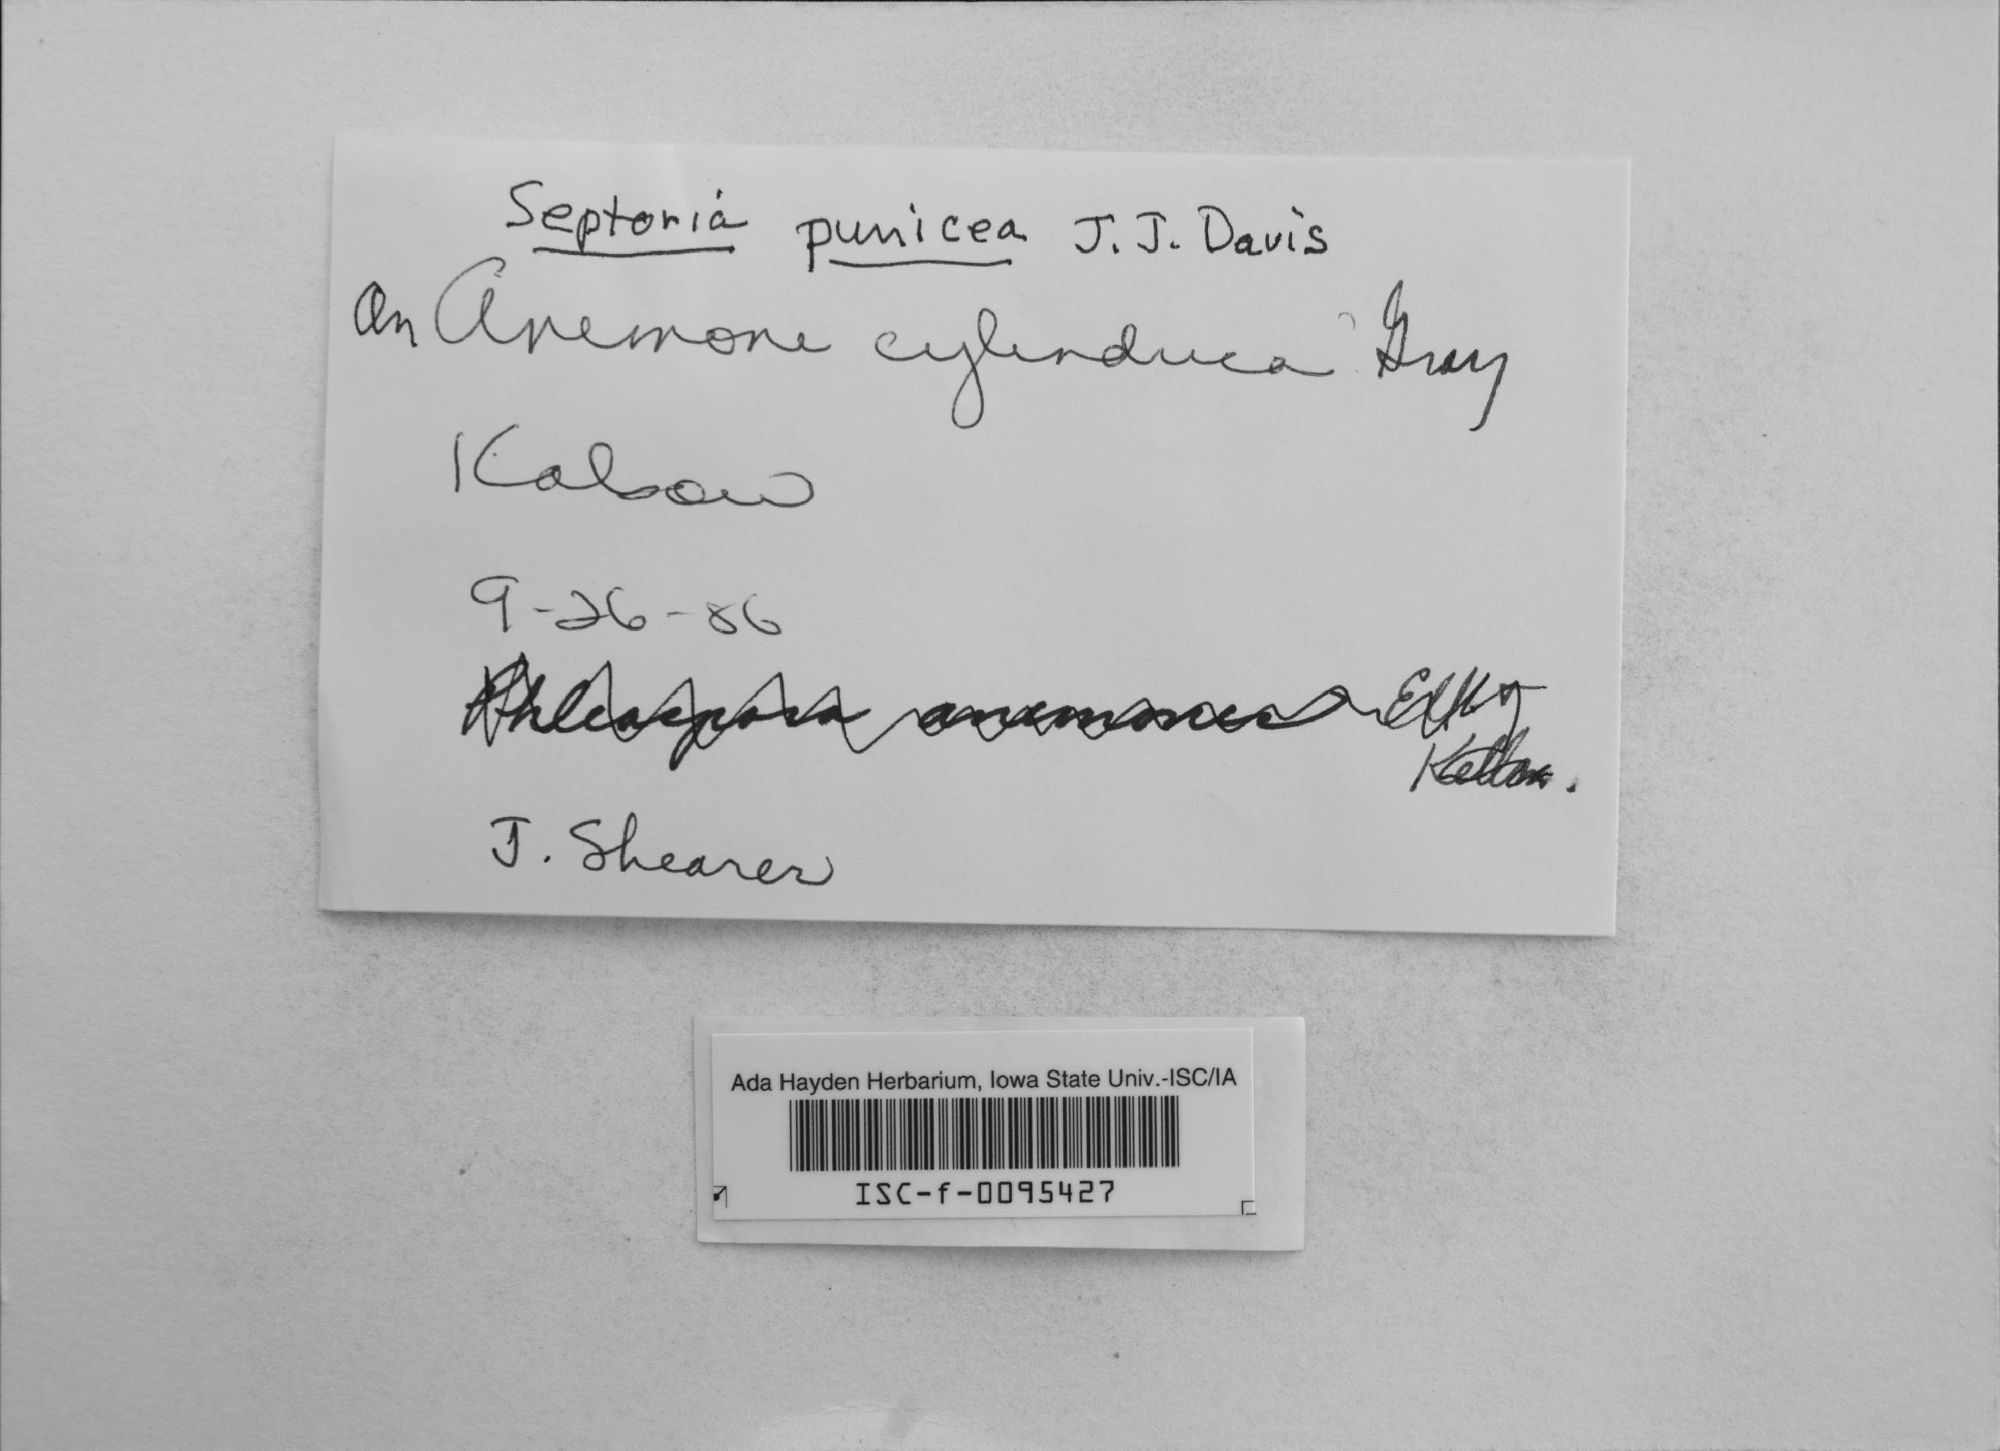 Septoria punicea J. J. Davis
On Anemone cylindrica Gray
Kalsow
9-26-86
Phleospora anemones Ell &
Kellerm.
J. Shearer
Ada Hayden Herbarium, Iowa State Univ.-ISC/IA
ISC-f-0095427